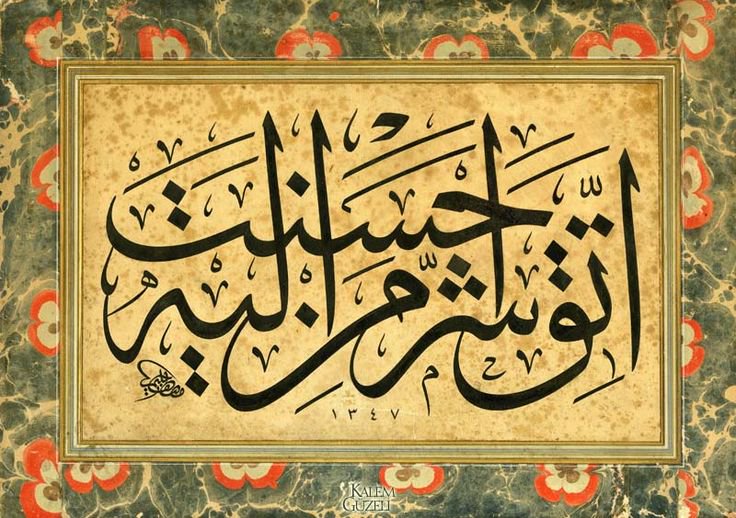 اتق شر من احسنت اليه
١٣٤٧
KALEM
GÜZELİ